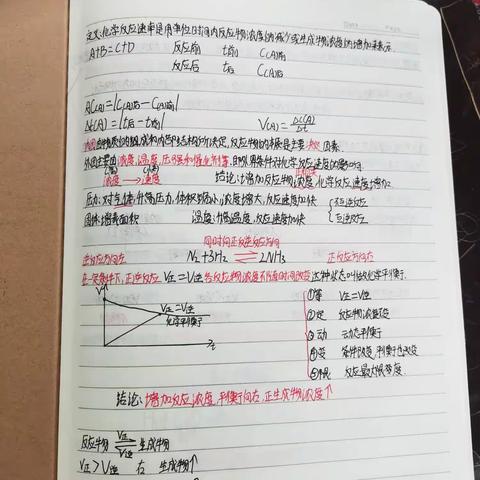 定义:化学反应速率是用单位时间内反应物浓度的减少或生成物浓度的增加来表示.
A+B=C+D 反应前 t前 C(A)前
反应后 t后 C(A)后
ΔC(A)=|C(A)后-C(A)前|
Δt(A)=|t后-t前| V(A)=ΔC(A)/Δt
内因:由物质的组成和内部结构所决定,反应物的本质是主要决定因素.
外因主要因浓度、温度、压力强和催化剂等,
浓度→速度 结论:增加反应物浓度,化学反应速度增加
压力:对气体,升高压力,体积缩小,浓度增大,反应速度加快
固体:增表面积 温度:增温度,反应速度加快
同时间正反逆反应方向
逆反应方向左 N₂+3H₂⇌2NH₃ 正反应方向右
在一定条件下,正逆反应 V正=V逆 各反应物浓度不随时间改变 这种状态叫做化学平衡.
V正=V逆
化学平衡
①等 V正=V逆
②定 反应物浓度
③动 动态平衡
④变 条件改变,平衡
⑤限 反应最大限度.
结论:增加反应浓度,平衡向右,正生成物浓度↑
反应物 V正 ⇌ V逆 生成物
V正>V逆 右 生成物↑